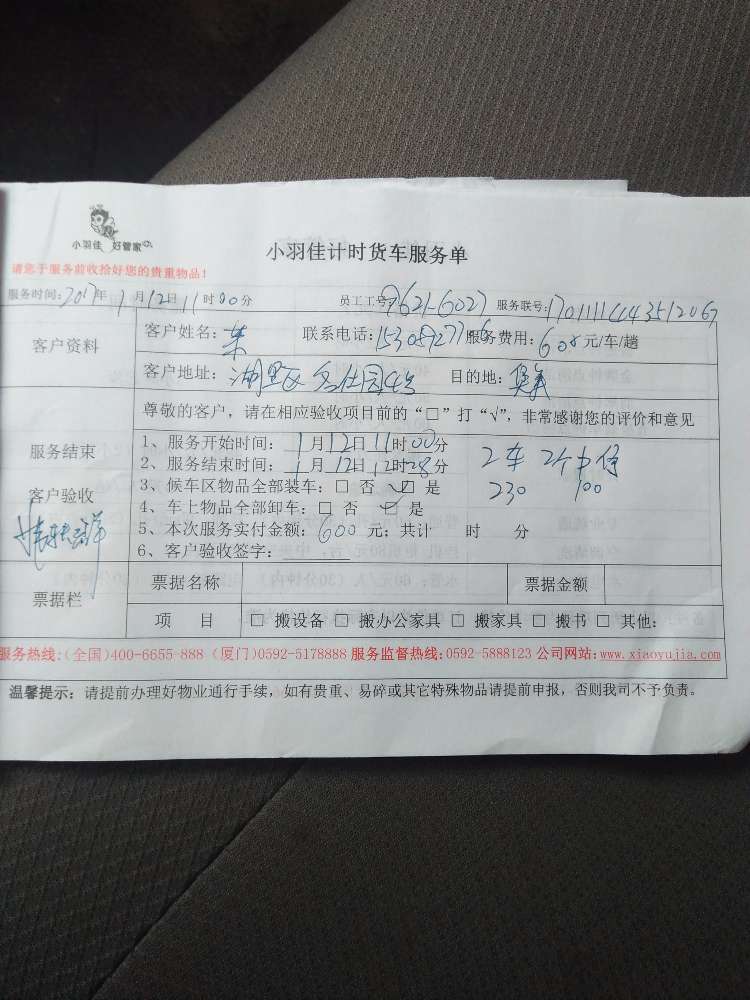 小羽佳 好管家
小羽佳计时货车服务单
请您于服务前收拾好您的贵重物品！
服务时间：2017年 1月12日11时00分 员工工号 服务联号：
客户资料
客户姓名：朱 联系电话： 服务费用：600元/车/趟
客户地址：湖里区 目的地：集美
尊敬的客户，请在相应验收项目前的“□”打“√”，非常感谢您的评价和意见
服务结束
客户验收
1、服务开始时间：1月12日11时00分
2、服务结束时间：1月12日12时28分
2车 2个
230 100
3、候车区物品全部装车：□ 否 ☑ 是
4、车上物品全部卸车：□ 否 ☑ 是
5、本次服务实付金额：600元；共计 时 分
6、客户验收签字：
票据栏
票据名称 票据金额
项 目 □ 搬设备 □ 搬办公家具 □ 搬家具 □ 搬书 □ 其他：
服务热线：(全国)400-6655-888 (厦门)0592-5178888 服务监督热线：0592-5888123 公司网站：www.xiaoyujia.com
温馨提示：请提前办理好物业通行手续，如有贵重、易碎或其它特殊物品请提前申报，否则我司不予负责。